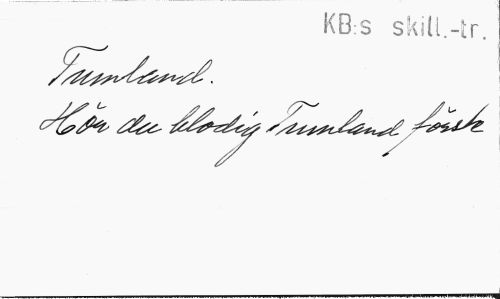 KB:s skill.-tr.
Tumland.
Hör du blodig Tumland försk